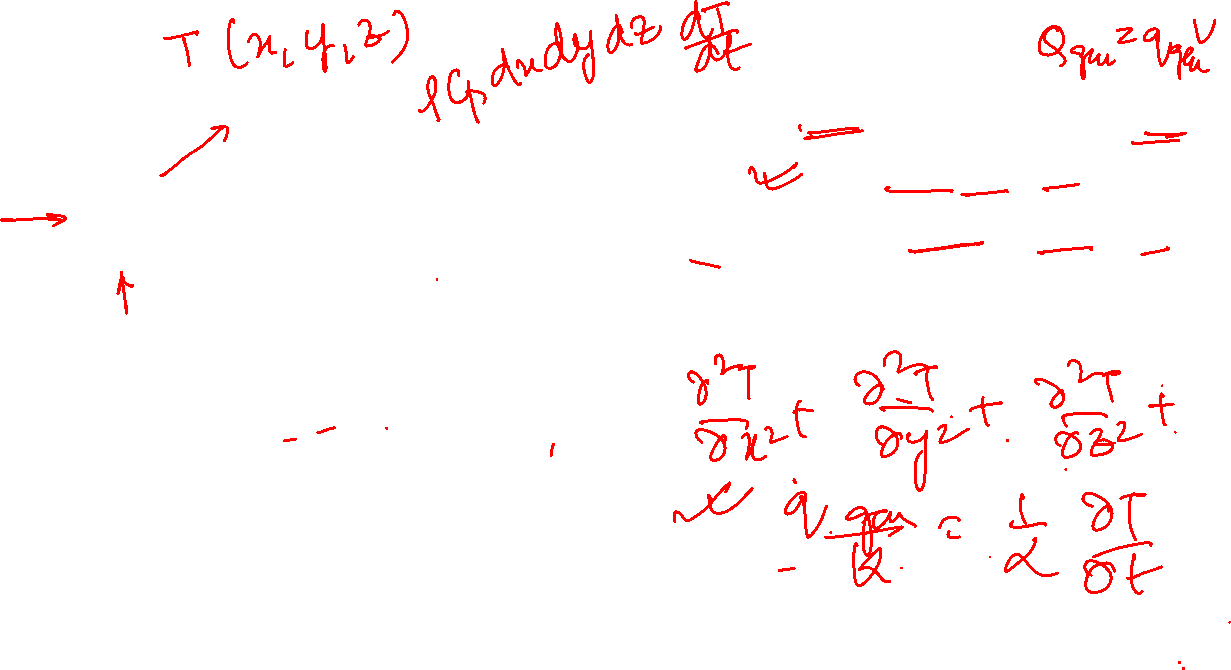 T (x, y, z)
ρCp dx dy dz dT/dt
Qgen = qgen V
∂²T/∂x² + ∂²T/∂y² + ∂²T/∂z² +
q̇gen/k = 1/α ∂T/∂t